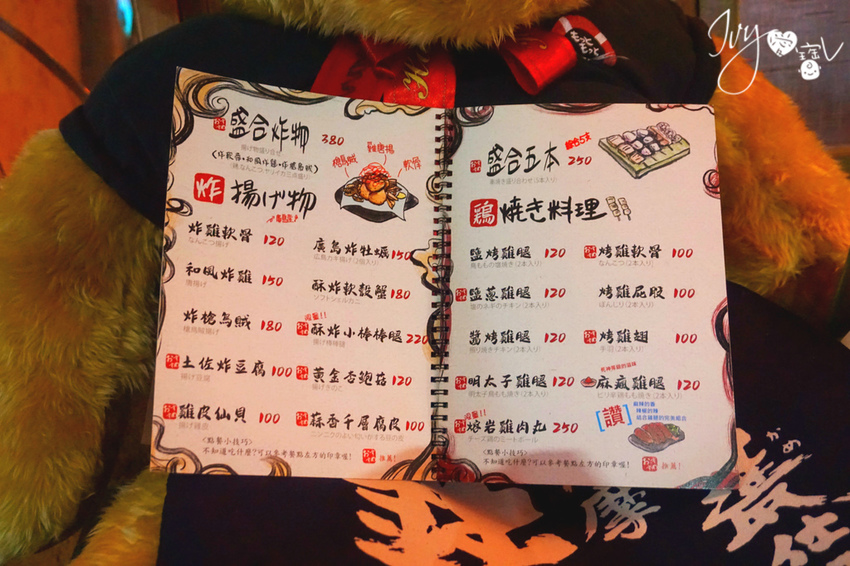 Ivy
寶
盛合炸物 380
揚げ物盛り合せ
(炸軟骨+和風炸雞+炸槍烏賊)
槍烏賊
雞唐揚
軟骨
炸 揚げ物
炸雞軟骨 120
なんこつ揚げ
廣島炸牡蠣 150
広島カキ揚げ(2個入り)
和風炸雞 150
唐揚げ
酥炸軟殼蟹 180
ソフトシェルカニ
炸槍烏賊 180
槍烏賊揚げ
限量!!
酥炸小棒棒腿 220
揚げ棒棒腿
土佐炸豆腐 100
揚げ豆腐
黃金杏鮑菇 120
雞皮仙貝 100
揚げ雞皮
蒜香千層腐皮 100
<點餐小技巧>
不知道吃什麼?可以參考餐點左方的印章喔!
推薦!
盛合五本 250
串焼き盛り合わせ(5本入り)
鶏 焼き料理
鹽烤雞腿 120
鳥ももの塩焼き(2本入り)
烤雞軟骨 100
なんこつ(2本入り)
鹽蔥雞腿 120
塩のネギのチキン(2本入り)
烤雞屁股 100
ぼんじり(2本入り)
醬烤雞腿 120
照り焼きチキン(2本入り)
烤雞翅 100
手羽(2本入り)
明太子雞腿 120
明太子鳥もも焼き(2本入り)
麻瘋雞腿 120
ピリ辛鶏もも焼き(2本入り)
限量!!
熔岩雞肉丸 250
チーズ鶏のミートボール
[讚]
<點餐小技巧>
不知道吃什麼?可以參考餐點左方的印章喔!
推薦!
かめ
摩